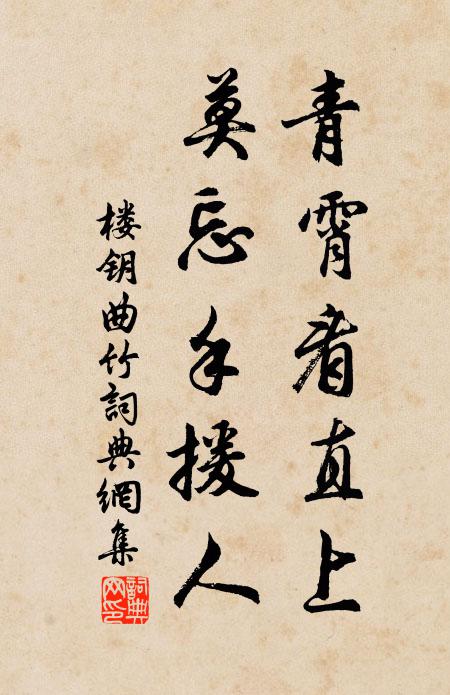 青霄看直上
莫忘手援人
楼钥曲竹詞典網集
詞典网印